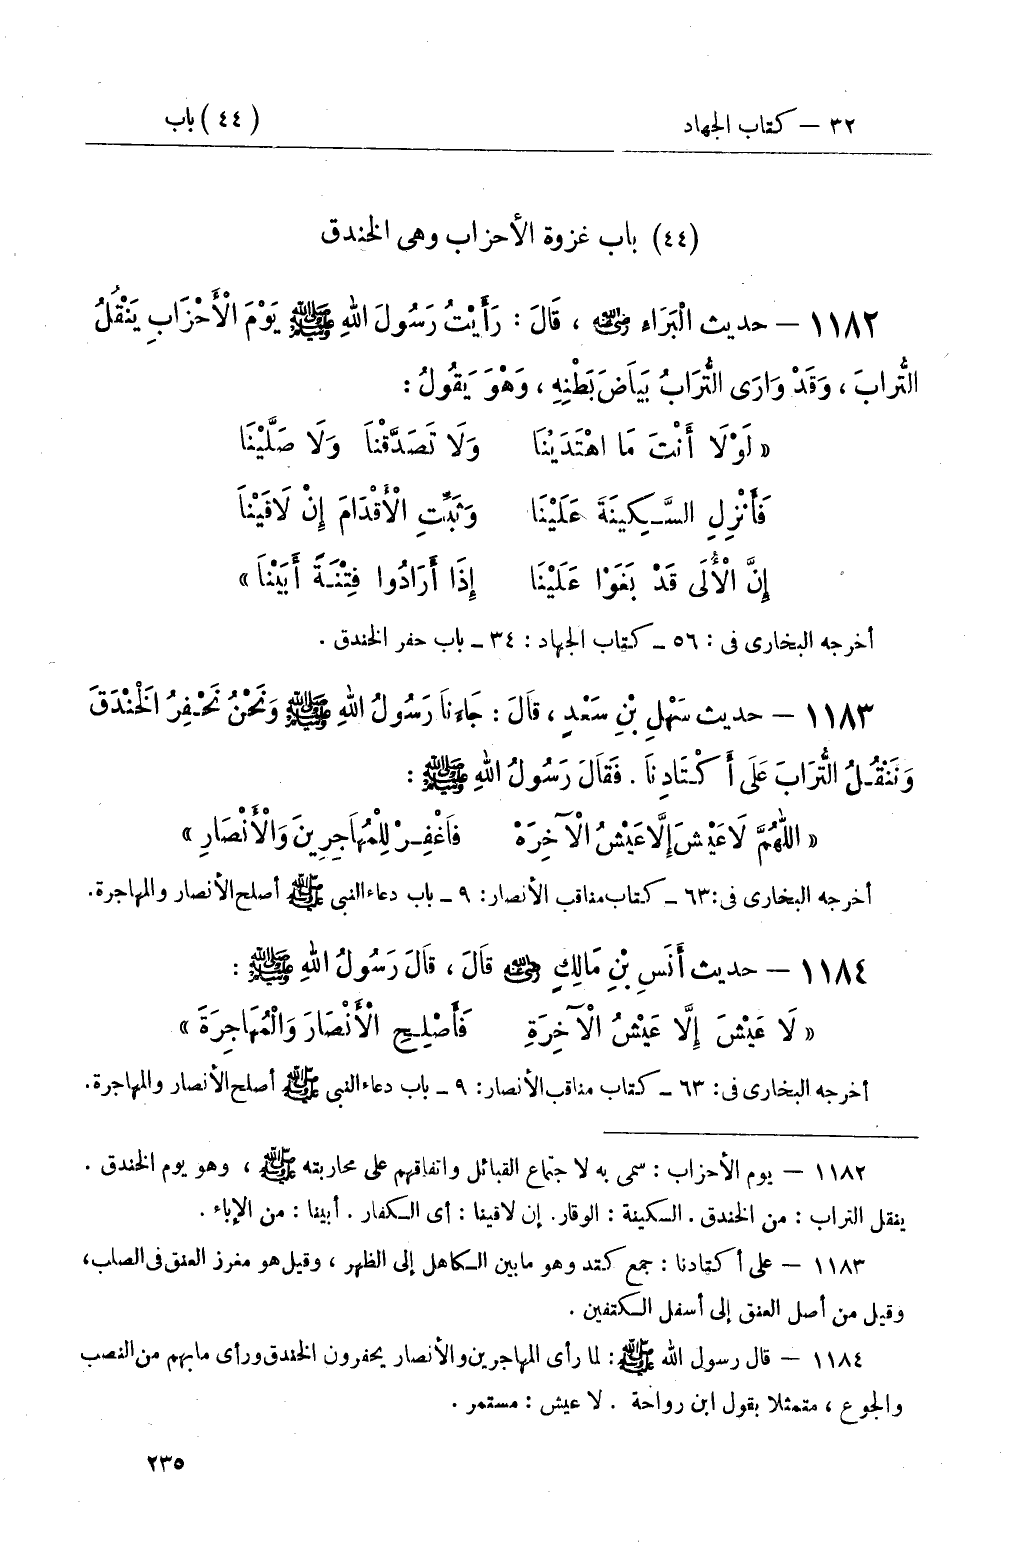 ٣٢ — كتاب الجهاد
(٤٤) باب
(٤٤) باب غزوة الأحزاب وهى الخندق
١١٨٢ — حديث الْبَرَاءِ رضي الله عنه ، قَالَ : رَأَيْتُ رَسُولَ اللهِ ﷺ يَوْمَ الْأَحْزَابِ يَنْقُلُ
التُّرابَ ، وَقَدْ وَارَى التُّرَابُ بَيَاضَ بَطْنِهِ ، وَهْوَ يَقُولُ :
« لَوْلَا أَنْتَ مَا اهْتَدَيْنَا وَلَا تَصَدَّقْنَا وَلَا صَلَّيْنَا
فَأَنْزِلِ السَّكِينَةَ عَلَيْنَا وَثَبِّتِ الْأَقْدَامَ إِنْ لَاقَيْنَا
إِنَّ الْأُلَى قَدْ بَغَوْا عَلَيْنَا إِذَا أَرَادُوا فِتْنَةً أَبَيْنَا »
أخرجه البخارى فى : ٥٦ ـ كتاب الجهاد : ٣٤ ـ باب حفر الخندق .
١١٨٣ — حديث سَهْلِ بْنِ سَعْدٍ ، قَالَ : جَاءَنَا رَسُولُ اللهِ ﷺ وَنَحْنُ نَحْفِرُ الْخَنْدَقَ
وَنَنْقُلُ التُّرَابَ عَلَى أَكْتَادِنَا . فَقَالَ رَسُولُ اللهِ ﷺ :
« اللّٰهُمَّ لَا عَيْشَ إِلَّا عَيْشُ الْآخِرَهْ فَاغْفِرْ لِلْمُهَاجِرِينَ وَالْأَنْصَارِ »
أخرجه البخارى فى: ٦٣ ـ كتاب مناقب الأنصار: ٩ ـ باب دعاء النبى ﷺ أصلح الأنصار والمهاجرة.
١١٨٤ — حديث أَنَسِ بْنِ مَالِكٍ رضي الله عنه قَالَ ، قَالَ رَسُولُ اللهِ ﷺ :
« لَا عَيْشَ إِلَّا عَيْشُ الْآخِرَةِ فَأَصْلِحِ الْأَنْصَارَ وَالْمُهَاجِرَةَ »
أخرجه البخارى فى: ٦٣ ـ كتاب مناقب الأنصار: ٩ ـ باب دعاء النبى ﷺ أصلح الأنصار والمهاجرة.
١١٨٢ — يوم الأحزاب : سمى به لاجتماع القبائل واتفاقهم على محاربته ﷺ ، وهو يوم الخندق .
ينقل التراب : من الخندق . السكينة : الوقار. إن لاقينا : أى الكفار . أبينا : من الإباء .
١١٨٣ — على أكتادنا : جمع كتد وهو مابين الكاهل إلى الظهر ، وقيل هو مغرز العنق فى الصلب،
وقيل من أصل العنق إلى أسفل الكتفين .
١١٨٤ — قال رسول الله ﷺ : لما رأى المهاجرين والأنصار يحفرون الخندق ورأى مابهم من النصب
والجوع ، متمثلا بقول ابن رواحة . لا عيش : مستمر .
٢٣٥